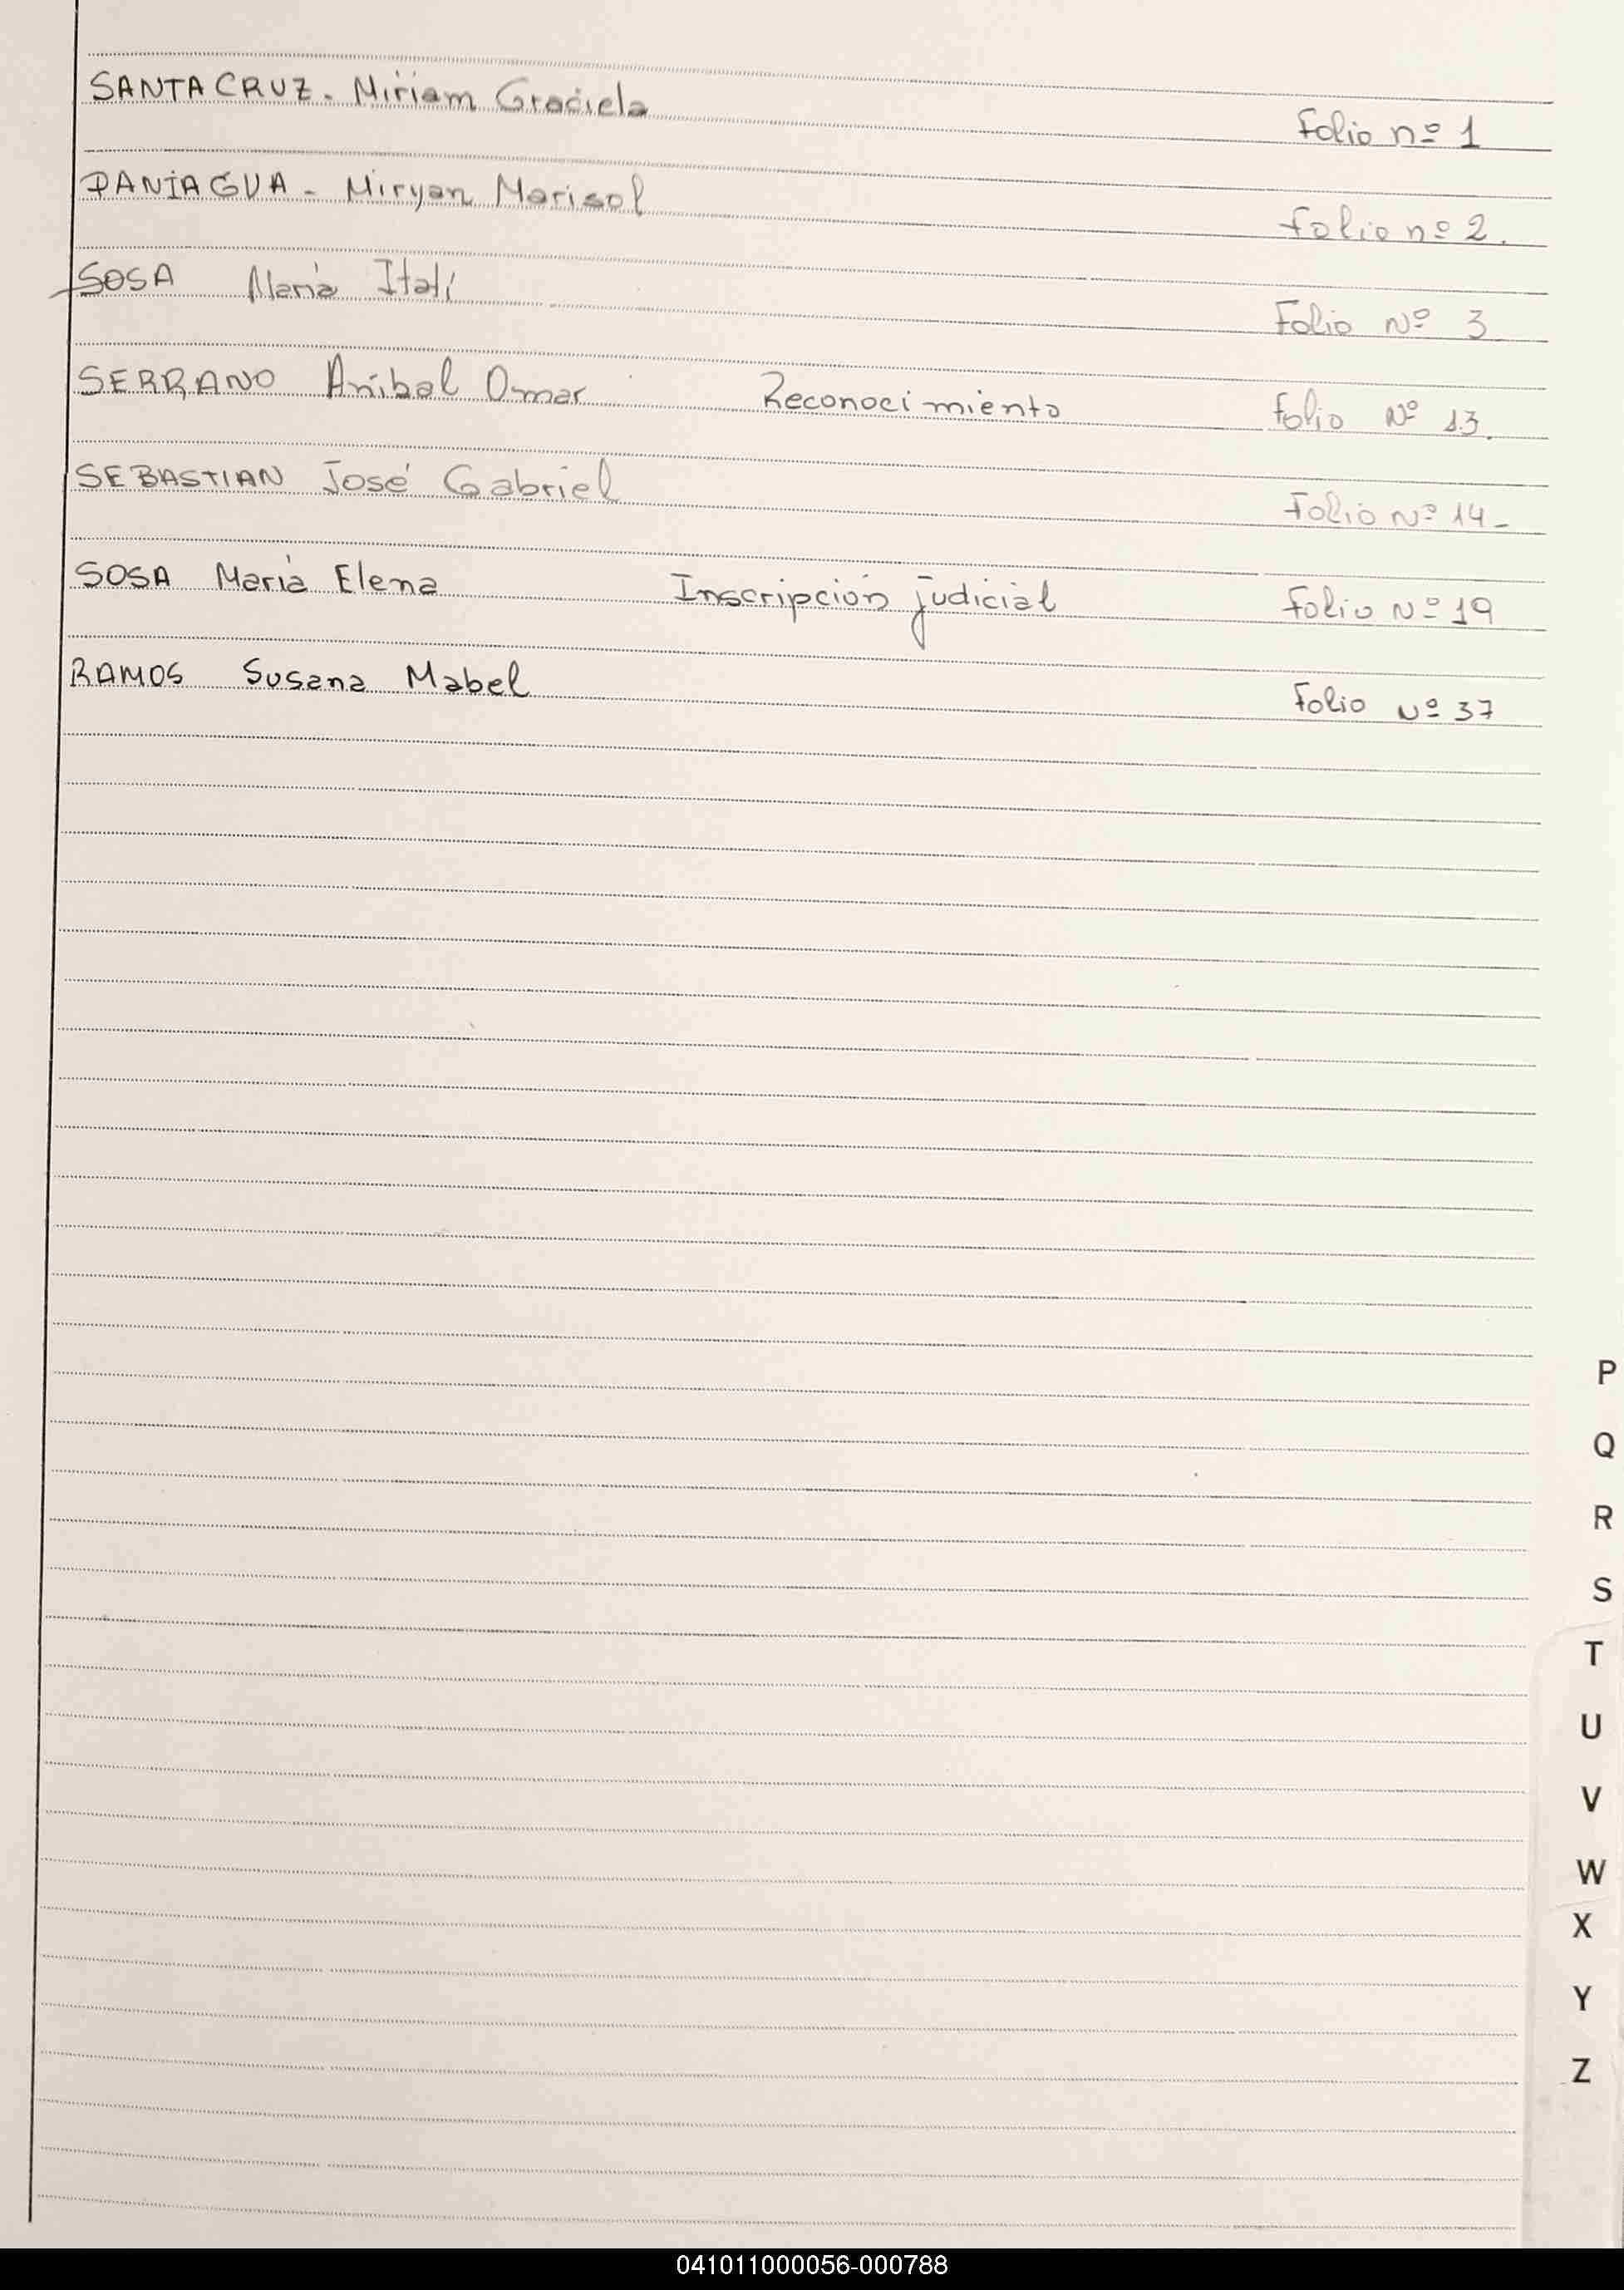 SANTA CRUZ - Miriam Graciela Folio nº 1
PANIAGUA - Miryan Marisol Folio nº 2.
SOSA María Itatí Folio Nº 3
SERRANO Aníbal Omar Reconocimiento Folio Nº 13.
SEBASTIAN José Gabriel Folio Nº 14-
SOSA María Elena Inscripción judicial Folio Nº 19
RAMOS Susana Mabel Folio Nº 37
P
Q
R
S
T
U
V
W
X
Y
Z
041011000056-000788